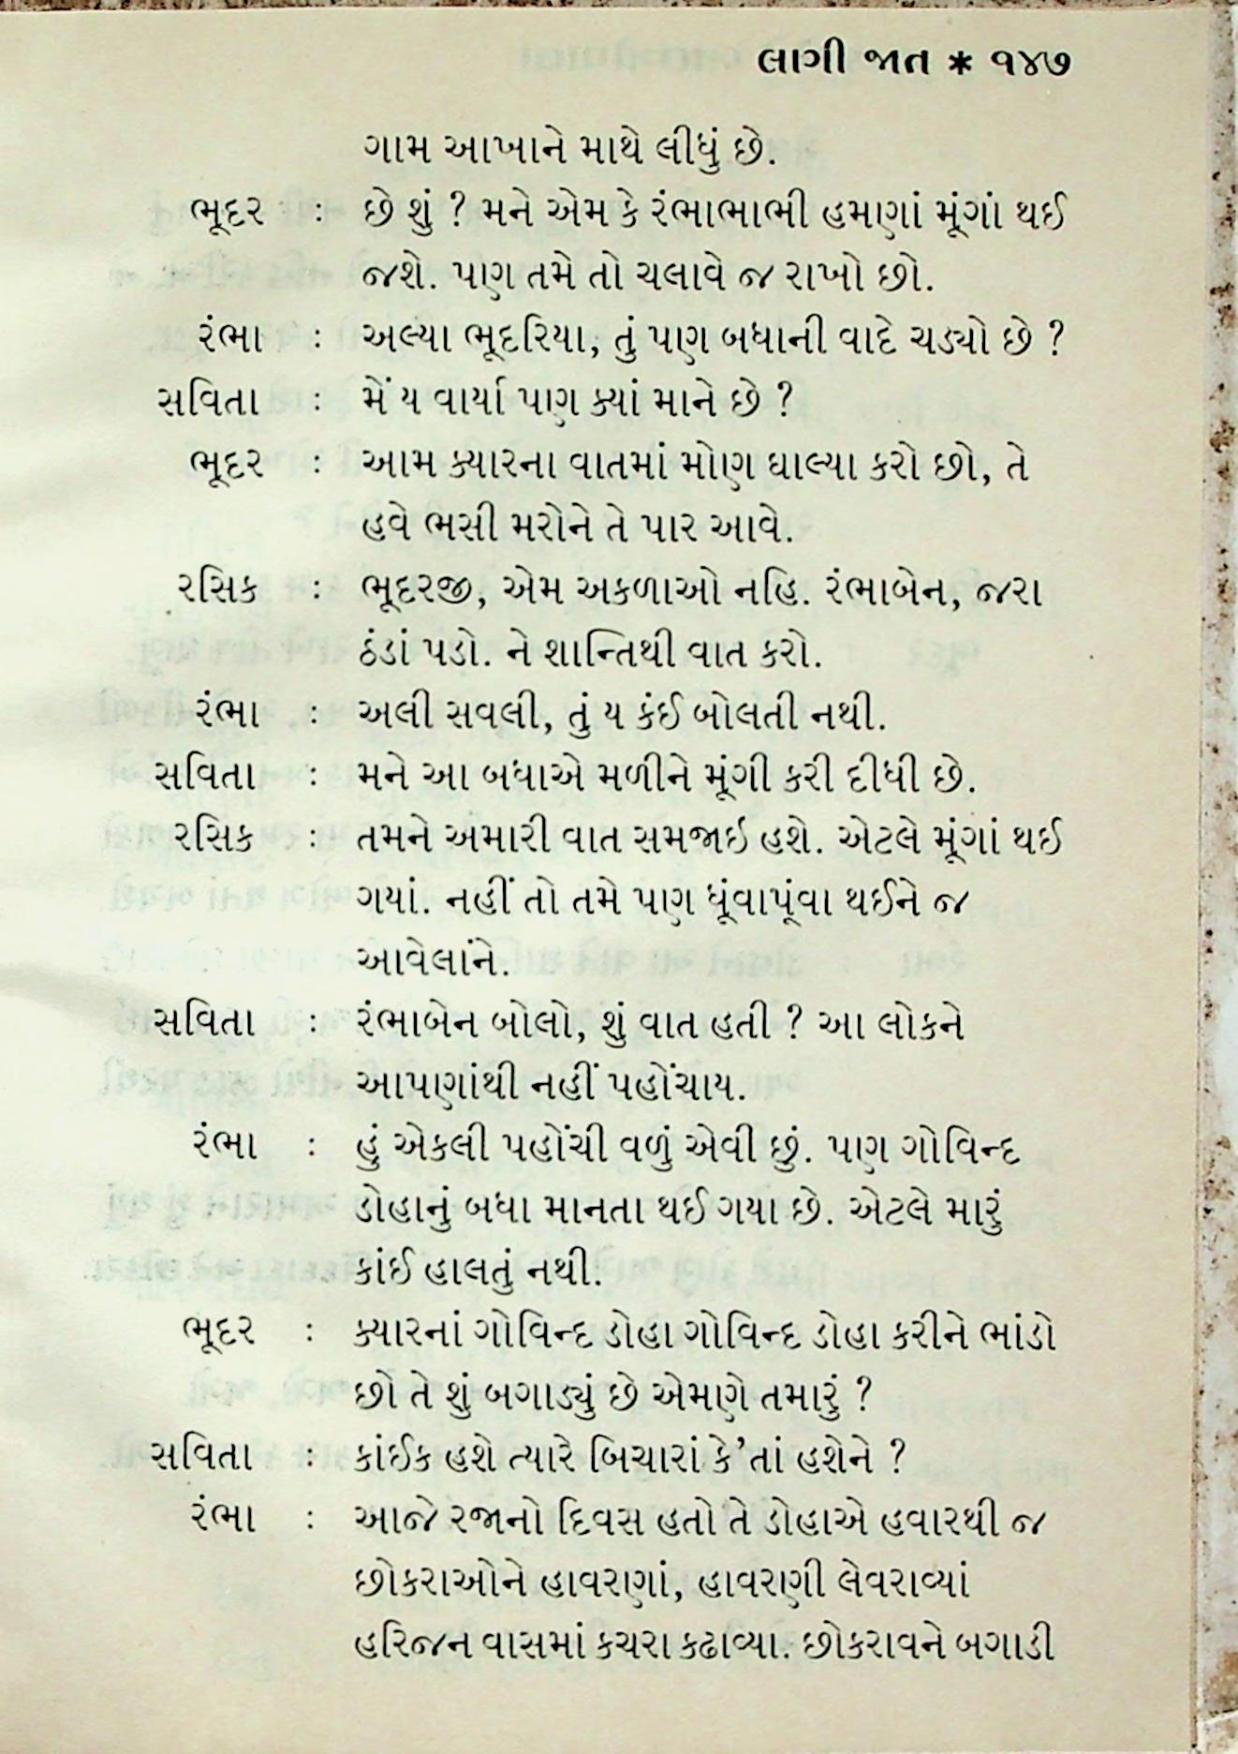 લાગી જાત * ૧૪૭
ગામ આખાને માથે લીધું છે.
ભૂદર : છે શું ? મને એમ કે રંભાભાભી હમણાં મૂંગાં થઈ
જશે. પણ તમે તો ચલાવે જ રાખો છો.
રંભા : અલ્યા ભૂદરિયા, તું પણ બધાની વાદે ચડ્યો છે ?
સવિતા : મેં ય વાર્યા પણ ક્યાં માને છે ?
ભૂદર : આમ ક્યારના વાતમાં મોણ ઘાલ્યા કરો છો, તે
હવે ભસી મરોને તે પાર આવે.
રસિક : ભૂદરજી, એમ અકળાઓ નહિ. રંભાબેન, જરા
ઠંડાં પડો. ને શાન્તિથી વાત કરો.
રંભા : અલી સવલી, તું ય કંઈ બોલતી નથી.
સવિતા : મને આ બધાએ મળીને મૂંગી કરી દીધી છે.
રસિક : તમને અમારી વાત સમજાઇ હશે. એટલે મૂંગાં થઈ
ગયાં. નહીં તો તમે પણ ધૂંવાપૂંવા થઈને જ
આવેલાંને.
સવિતા : રંભાબેન બોલો, શું વાત હતી ? આ લોકને
આપણાંથી નહીં પહોંચાય.
રંભા : હું એકલી પહોંચી વળું એવી છું. પણ ગોવિન્દ
ડોહાનું બધા માનતા થઈ ગયા છે. એટલે મારું
કાંઈ હાલતું નથી.
ભૂદર : ક્યારનાં ગોવિન્દ ડોહા ગોવિન્દ ડોહા કરીને ભાંડો
છો તે શું બગાડ્યું છે એમણે તમારું ?
સવિતા : કાંઈક હશે ત્યારે બિચારાં કે'તાં હશેને ?
રંભા : આજે રજાનો દિવસ હતો તે ડોહાએ હવારથી જ
છોકરાઓને હાવરણાં, હાવરણી લેવરાવ્યાં
હરિજન વાસમાં કચરા કઢાવ્યા. છોકરાવને બગાડી